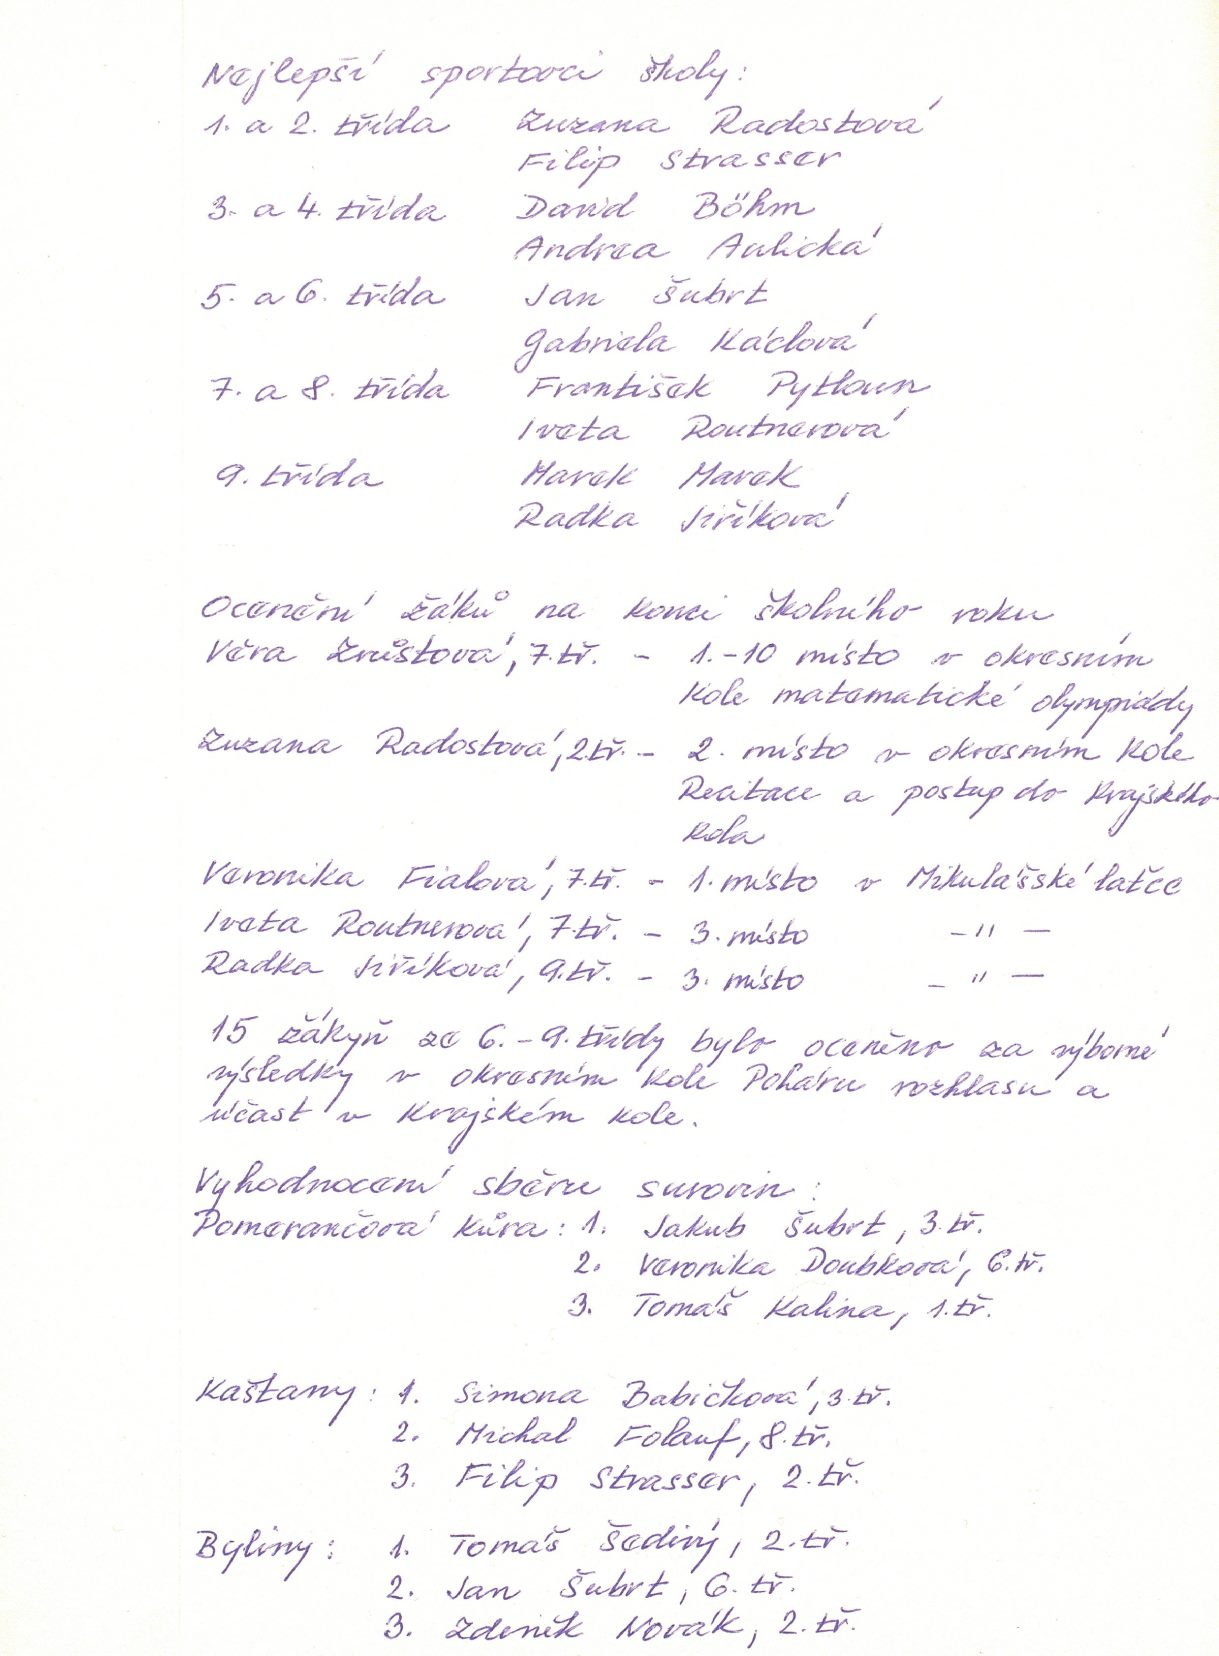 Nejlepší sportovci školy:
1. a 2. třída Zuzana Radostová
Filip Strasser
3. a 4. třída David Böhm
Andrea Aulická
5. a 6. třída Jan Šubrt
Gabriela Káclová
7. a 8. třída František Pytloun
Iveta Routnerová
9. třída Marek Marek
Radka Jiříková
Ocenění žáků na konci školního roku
Věra Zrůstová, 7.tř. - 1.-10 místo v okresním
kole matematické olympiády
Zuzana Radostová, 2.tř. - 2. místo v okresním kole
Recitace a postup do Krajského
kola
Veronika Fialová, 7.tř. - 1. místo v Mikulášské laťce
Iveta Routnerová, 7.tř. - 3. místo -"-
Radka Jiříková, 9.tř. - 3. místo -"-
15 žákyň ze 6.-9. třídy bylo oceněno za výborné
výsledky v okresním kole Poháru rozhlasu a
účast v Krajském kole.
Vyhodnocení sběru surovin:
Pomerančová kůra: 1. Jakub Šubrt, 3.tř.
2. Veronika Doubková, 6.tř.
3. Tomáš Kalina, 1.tř.
Kaštany: 1. Simona Babičková, 3.tř.
2. Michal Folauf, 8.tř.
3. Filip Strasser, 2.tř.
Byliny: 1. Tomáš Šedivý, 2.tř.
2. Jan Šubrt, 6.tř.
3. Zdeněk Novák, 2.tř.